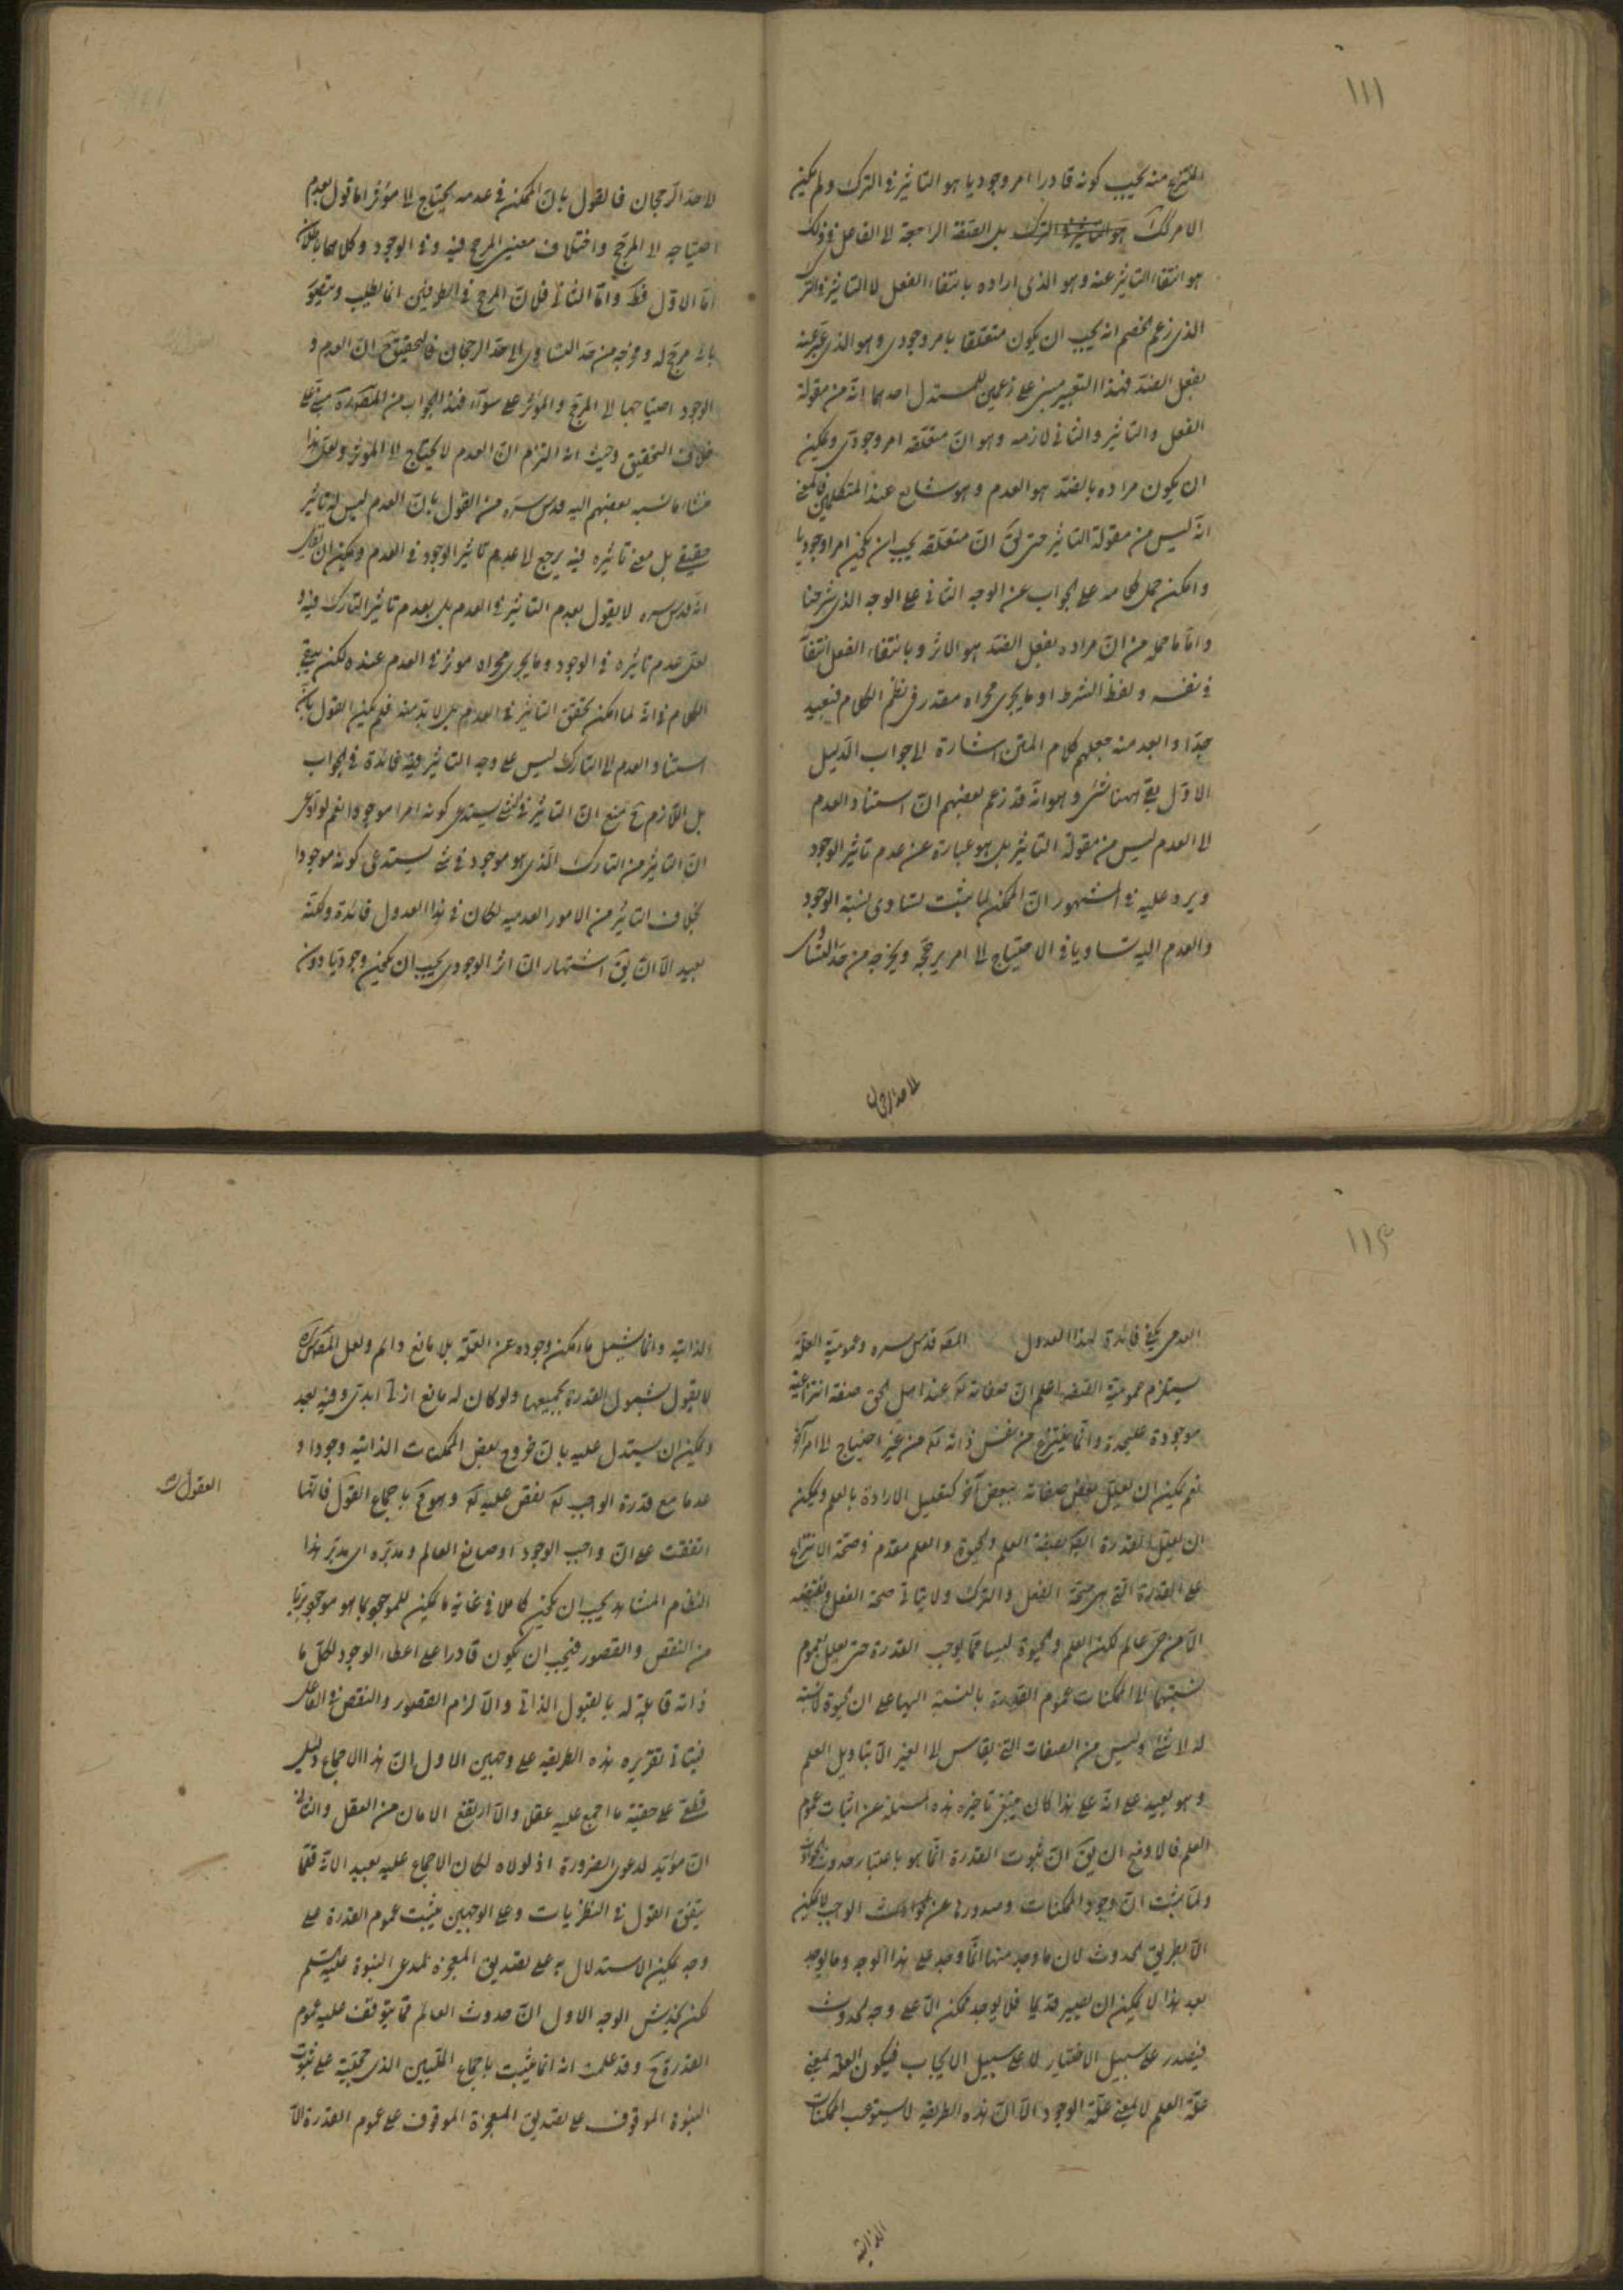 ١١١
المنتزع منه يجب كونه قادرا امر وجوديا هو التاثير في الترك ولم يكن
الامر كك بل الصفة الراجعة لا الفاعل في ذلك
هو انتفاء التاثير عنه وهو الذى اراده بانتفاء الفعل لا التاثير في الترك
الذى زعم الخصم انه يجب ان يكون متعلقا بامر وجودى وهو الذى عبر عنه
بفعل الضد فهذا التعبير مبنى على زعمين للمستدل احدهما انه من مقولة
الفعل والتاثير والثانى لازمه وهو ان متعلقه امر وجودى ويمكن
ان يكون مراده بالضد هو العدم وهو شايع عند المتكلمين فالمعنى
انه ليس من مقولة التاثير حتى يق ان متعلقه يجب ان يكون امرا وجوديا
وامكن حمل كلامه على الجواب عن الوجه الثانى على الوجه الذى شرحنا
واما ما حمله من ان مراده بفعل الضد هو الاثر وبانتفاء الفعل انتفآ
في نفسه ولفظ الشرط او ما يجرى مجراه مقدر في نظم الكلام فبعيد
جدا وابعد منه جعلهم كلام المتن اشارة لا جواب الدليل
الاول بقى ههنا شئ وهو انه قد زعم بعضهم ان استناد العدم
لا العدم ليس من مقولة التاثير بل هو عبارة عن عدم تاثير الوجود
ويرد عليه في المشهور ان الممكن لما يثبت تساوى نسبة الوجود
والعدم اليه تساويا في الاحتياج لا امر يرجحه ويخرجه من حد التساوى
لا حد الرجحان
لا حد الرجحان فالقول بان الممكن في عدمه يحتاج لا مؤثر اما قول بعدم
احتياجه لا المرجح واختلاف معنيى المرجح فيه وفى الوجود وكلاهما باطلان
اما الاول فظ واما الثانى فلان المرجح في الطرفين انما يطلب
بانه مرجح له ومخرجه من حد التساوى الى حد الرجحان فالتحقيق ان العدم و
الوجود احتياجهما لا المرجح والمؤثر على سوآء فهذا الجواب من
خلاف التحقيق وحيث انه التزم ان العدم لا يحتاج لا المؤثر ولعل هذا
منشاء ما نسبه بعضهم اليه قدس سره من القول بان العدم ليس له تاثير
حقيقى بل معنى تاثيره فيه يرجع لا عدم تاثير الوجود في العدم ويمكن ان يقال
انه قدس سره لا يقول بعدم التاثير في العدم بل بعدم تاثير التارك فيه و
لعل عدم تاثيره في الوجود وما يجرى مجراه موثر في العدم عنده لكن يبقى
الكلام في انه لما امكن تحقق التاثير في العدم بل لابد منه فلم يكن القول بان
استناد العدم لا التارك ليس على وجه التاثير فيه فائدة في الجواب
بل اللازم ح منع ان التاثير في شئ يستدعى كونه امرا موجودا نعم لو ادعى
ان التاثير من التارك الذى هو موجود في شئ يستدعى كونه موجودا
بخلاف التاثير من الامور العدميه لكان في هذا العدول فائدة ونكته
بعيد الا ان يق اشتهار ان اثر الوجودى يجب ان يكون وجوديا دون
١١٢
العدمى يكفى فائدة لهذا العدول المص قدس سره وعمومية العلة
يستلزم عمومية الصفه اعلم ان صفاته تع عند اهل الحق صفة انتزاعية
موجودة عليحدة وانما ينتزع من نفس ذاته تع من غير احتياج لا امر آخر
نعم يمكن ان يعلل بعض صفاته ببعض آخر كتعليل الارادة بالعلم ويمكن
ان يعلل القدرة ايضا بصفة العلم والحيوة والعلم مقدم في صحة الانتزاع
على القدرة التى هى صحة الفعل والترك ولا يتاتى صحة الفعل ونقيضه
الا من حى عالم لكن العلم والحيوة ليسا مما يوجب القدرة حتى يعلل بعموم
نسبتهما لا الممكنات عموم القدرة بالنسبة اليها على ان الحيوة لا نسبة
له لا شئ وليس من الصفات التى يقاس لا الغير الا بتاويل العلم
وهو بعيد على انه على هذا كان ينبغى تاخيره هذه المسئلة عن اثبات عموم
العلم فالاوضح ان يق ان ثبوت القدرة انما هو باعتبار حدوث الحوادث
ولما يثبت ان وجود الممكنات وصدورها عن الواجب لا يمكن
الا بطريق الحدوث لان ما وجد منها انما وجد على هذا الوجه وما يوجد
بعد هذا لا يمكن ان يصير قديما فلا يوجد ممكن الا على وجه الحدوث
فيصدر على سبيل الاختيار لا على سبيل الايجاب فيكون العلة بمعنى
علة العلم لا بمعنى علة الوجود الا ان هذه الطريقه لا يستوعب الممكنات
الذاتية
الذاتيه وانما يشمل ما امكن وجوده عن العلة بلا مانع دائم ولعل المص قدس سره
لا يقول بشمول القدرة بجميعها ولو كان له مانع ازلى ابدى وفيه بعد
ويمكن ان يستدل عليه بان خروج بعض الممكنات الذاتيه وجودا و
عدما مع قدرة الواجب تع نقص عليه تع وهو مح باجماع العقول فانها
العقول
اتفقت على ان واجب الوجود او صانع العالم ومدبره اى مدبر هذا
النظام المشاهد يجب ان يكون كاملا في غاية ما يمكن للموجود بما هو موجود بريئا
من النقص والقصور فيجب ان يكون قادرا على اعطاء الوجود لكل ما
ذاته قابلة له بالقبول الذاتى والا لزم القصور والنقص في الفاعل
فيتاتى تقريره هذه الطريقه على وجهين الاول ان هذا الاجماع دليل
قطعى على حقية ما اجمع عليه عقلا والا ارتفع الامان من العقل والثانى
ان مؤيد لدعوى الضرورة اذ لولاه لكان الاجماع عليه بعيد الانه قلما
يتفق العقول في النظريات وعلى الوجهين يثبت عموم القدرة على
وجه يمكن الاستدلال به على تصديق المعجزة لمدعى النبوة
لكن يخدش الوجه الاول ان حدوث العالم مما يتوقف عليه عموم
القدرة ح وقد علمت انه انما يثبت باجماع المليين الذى حجيته على ثبوت
النبوة الموقوف على تصديق المعجزة الموقوف على عموم القدرة الا